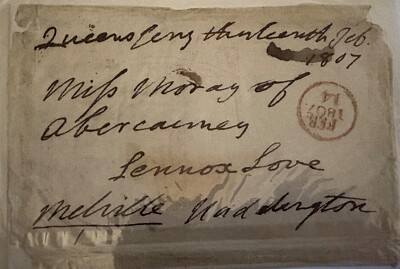 Queensferry thirteenth Feb.
1807
Miss Moray of
Abercairney
Lennox Love
Melville Haddington
FEB
14
1807